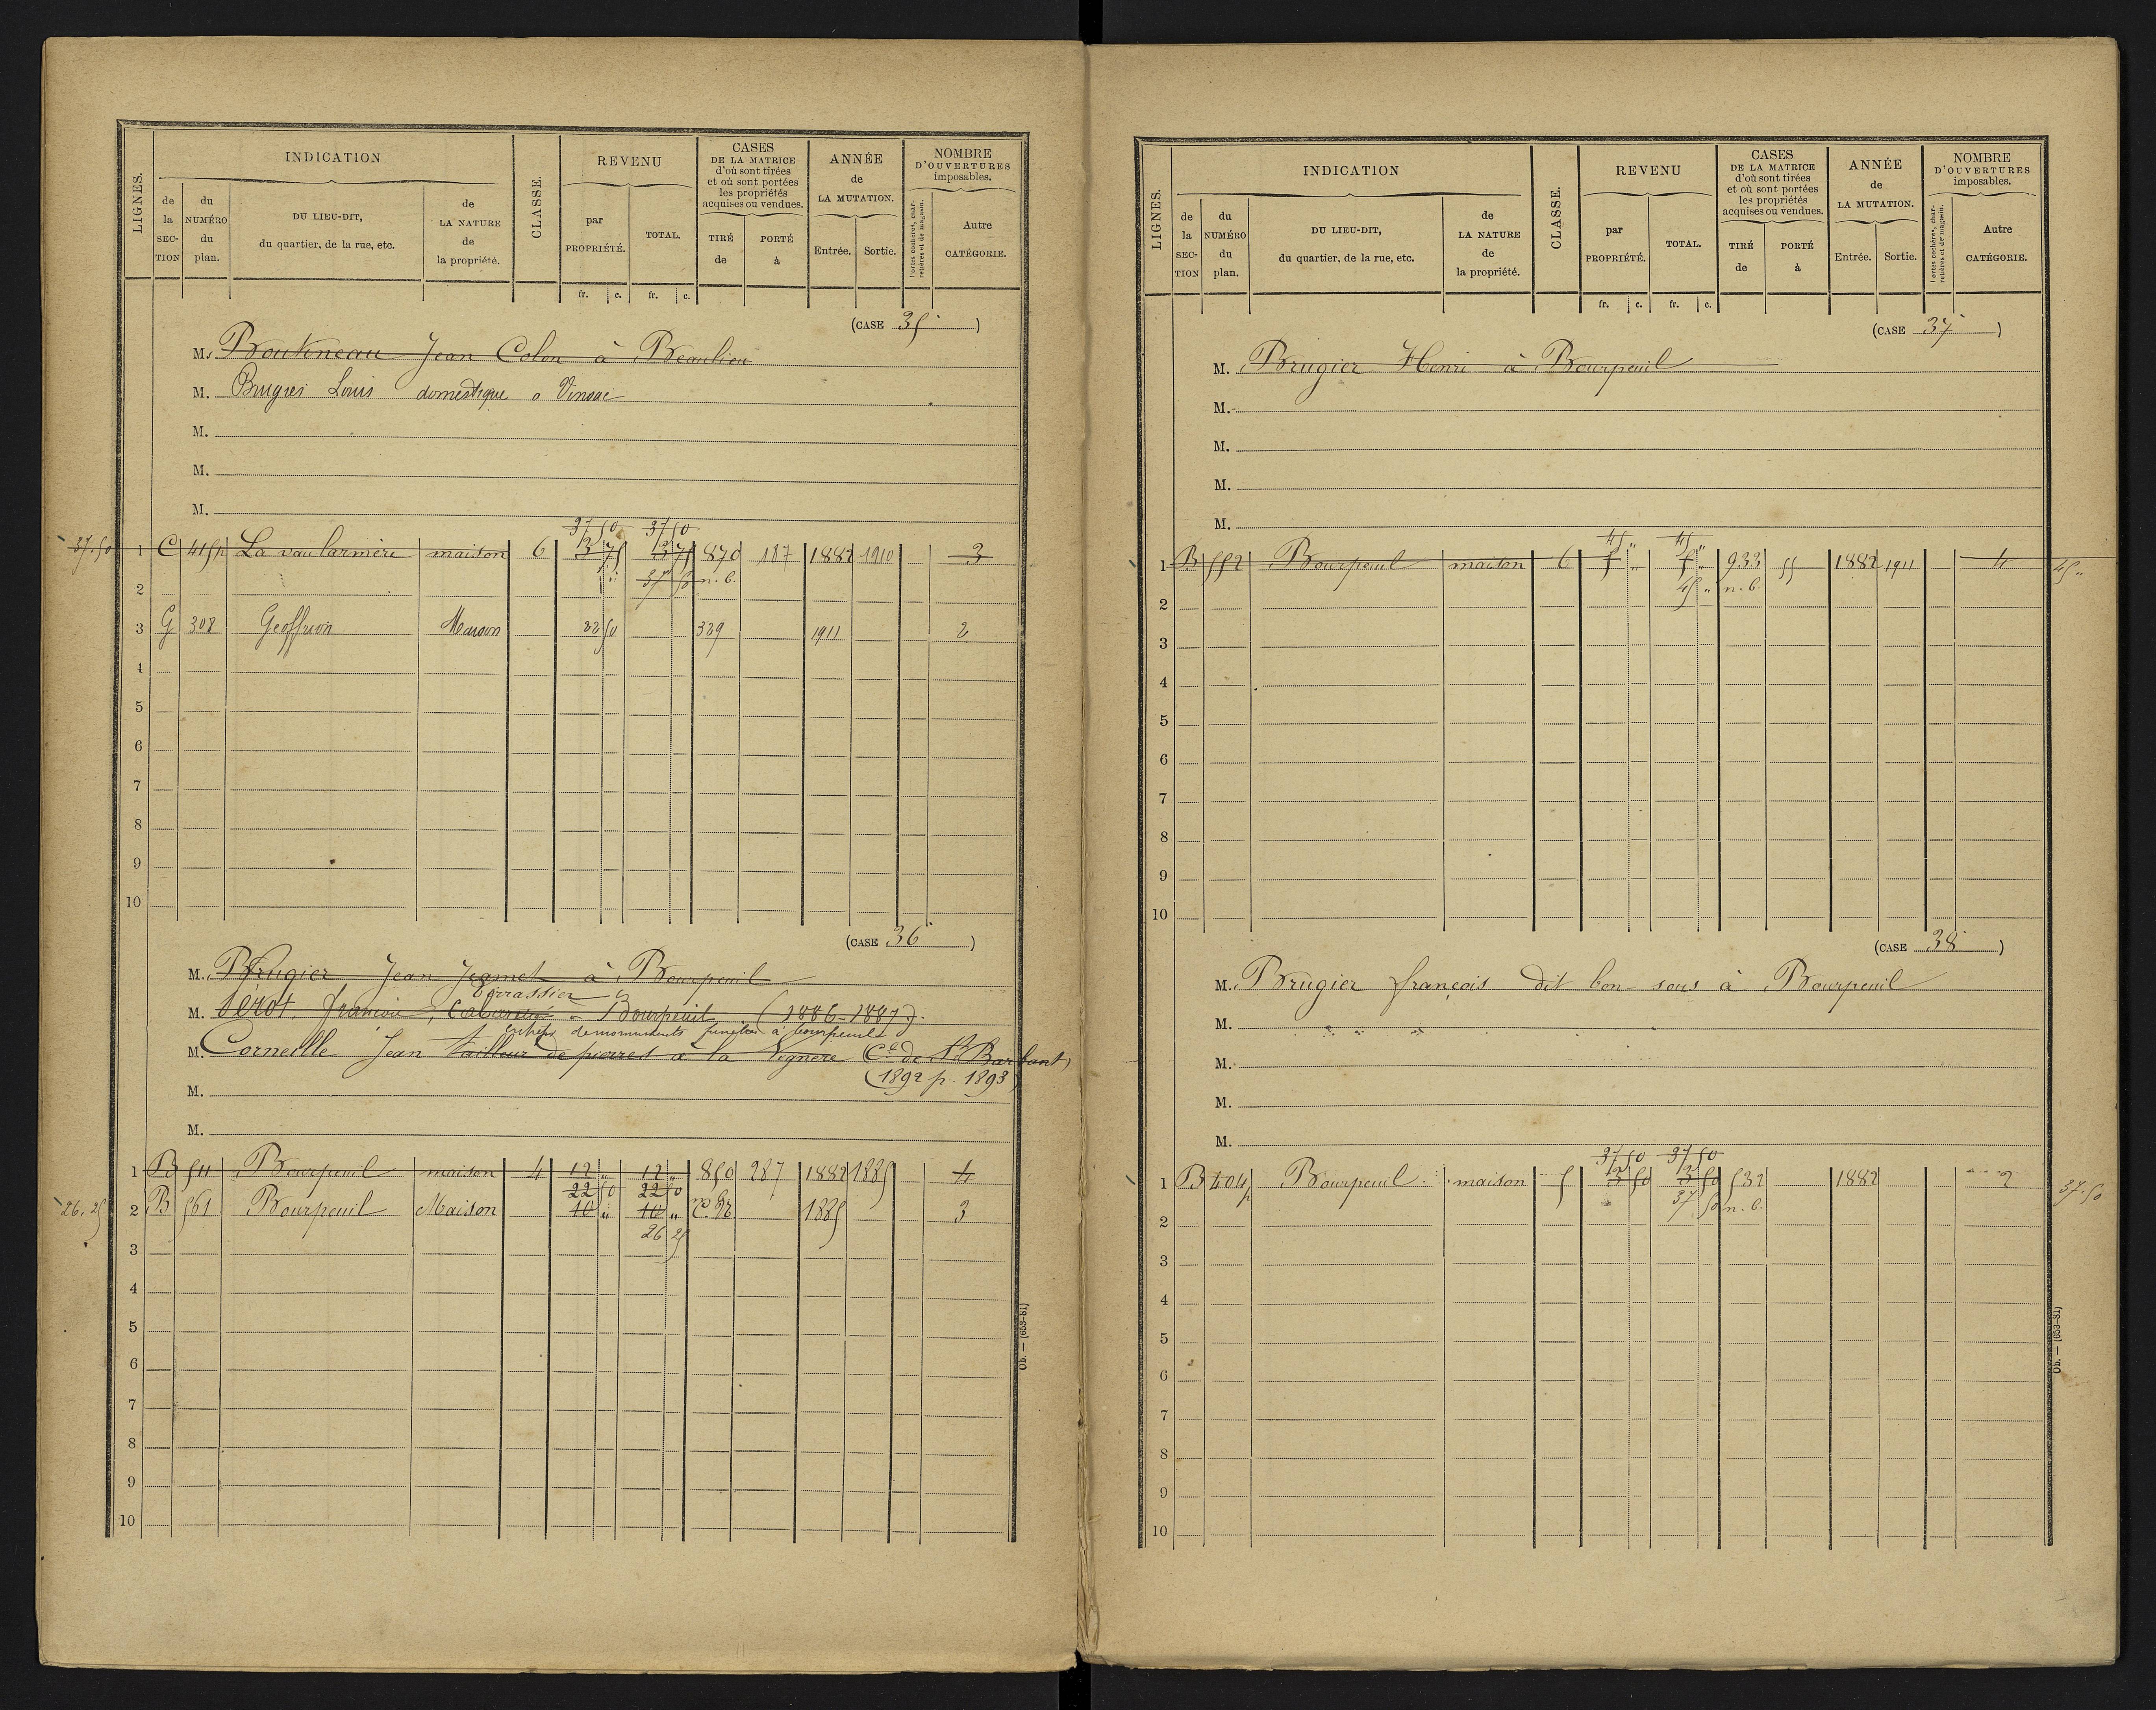 LIGNES.
INDICATION
CLASSE.
REVENU
CASES
DE LA MATRICE
d'où sont tirées
et où sont portées
les propriétés
acquises ou vendues.
ANNÉE
de
LA MUTATION.
NOMBRE
D'OUVERTURES
imposables.
de la SECTION
du NUMÉRO du plan.
DU LIEU-DIT,
du quartier, de la rue, etc.
de LA NATURE de la propriété.
par PROPRIÉTÉ.
TOTAL.
TIRÉ de
PORTÉ à
Entrée.
Sortie.
Portes cochères, charretières et de magasin.
Autre CATÉGORIE.
fr. c. fr. c.
(CASE 35)
M. Jean Colon à Beaulieu
M. Louis domestique
M.
M.
M.
37 50 37 50
37.50 1 C maison 6 3 75 3 75 870 187 1882 1910 3
37 50 n.b.
2
3 G 308 Geoffrion Maison 22 50 329 1911 2
4
5
6
7
8
9
10
(CASE 36)
M. Brugier Jean Jeamet à Bourpeuil
terrassier
M. François, à Bourpeuil (1886-1887).
à bourpeuil
M. Corneille Jean tailleur de pierres à la (Cne de St Barbant)
(1892 p. 1893)
M.
M.
1 B 511 Bourpeuil maison 4 12 " 12 " 850 287 1882 1885 4
22 50 22 50
26.25 2 B 561 Bourpeuil Maison 10 " 10 " 1885 3
26 25
3
4
5
6
7
8
9
10
Ob. — (653-81)
LIGNES.
INDICATION
CLASSE.
REVENU
CASES
DE LA MATRICE
d'où sont tirées
et où sont portées
les propriétés
acquises ou vendues.
ANNÉE
de
LA MUTATION.
NOMBRE
D'OUVERTURES
imposables.
de la SECTION
du NUMÉRO du plan.
DU LIEU-DIT,
du quartier, de la rue, etc.
de LA NATURE de la propriété.
par PROPRIÉTÉ.
TOTAL.
TIRÉ de
PORTÉ à
Entrée.
Sortie.
Portes cochères, charretières et de magasin.
Autre CATÉGORIE.
fr. c. fr. c.
(CASE 37)
M. Brugier Henri à Bourpeuil
M.
M.
M.
M.
45 " 45 "
1 B 552 Bourpeuil maison 6 933 55 1882 1911 4 45 "
45 " n.b.
2
3
4
5
6
7
8
9
10
(CASE 38)
M. Brugier françois dit bon-sous à Bourpeuil
M.
M.
M.
M.
37 50 37 50
1 B 404p Bourpeuil maison 5 3 50 3 50 532 1882 2 37.50
37 50 n.b.
2
3
4
5
6
7
8
9
10
Ob. — (653-81)